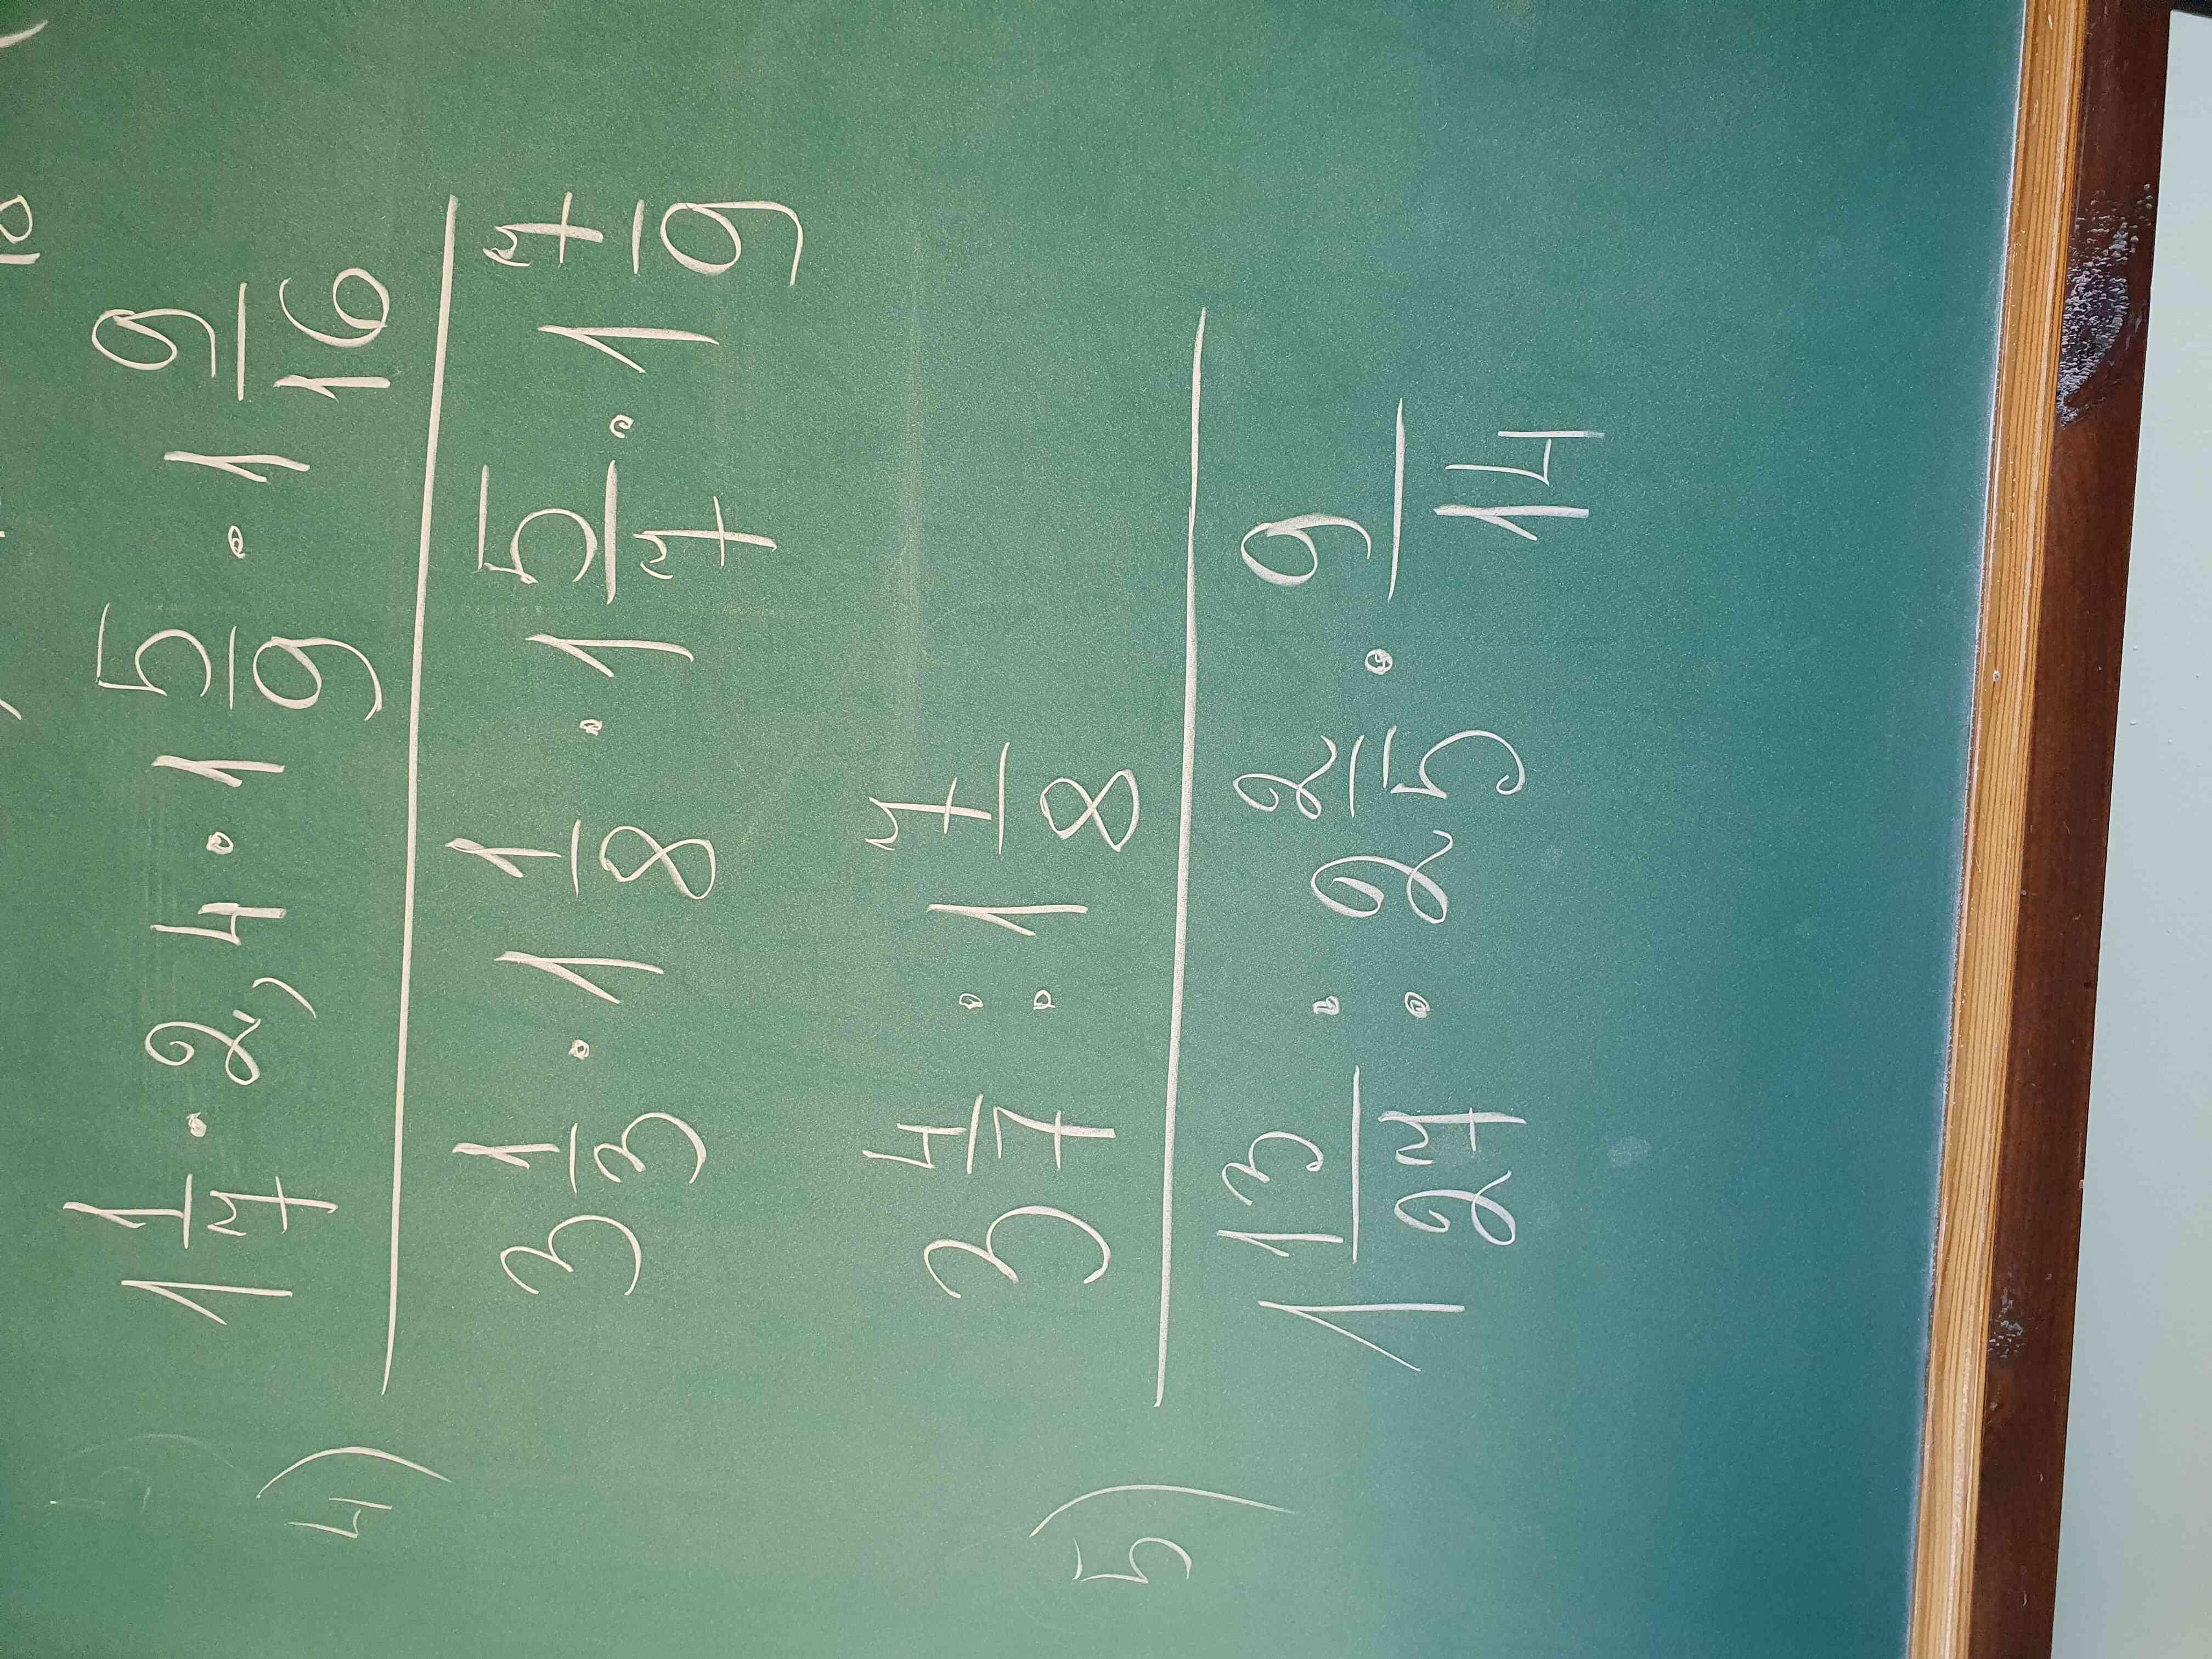 4) (1 1/7 · 2,4 · 1 5/9 · 1 9/16) / (3 1/3 · 1 1/8 · 1 5/7 · 1 7/9)
5) (3 4/7 : 1 7/8) / (1 13/27 : 2 2/5 · 9/14)